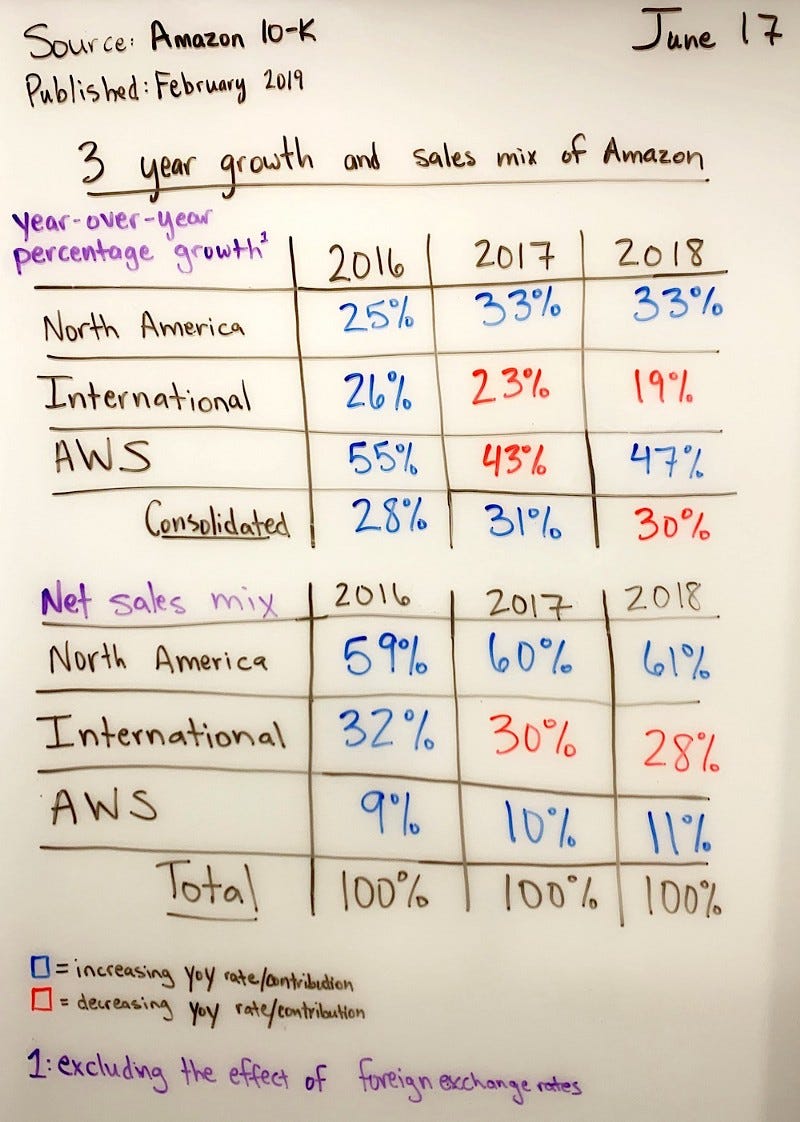 Source: Amazon 10-K
June 17
Published: February 2019
3 year growth and sales mix of Amazon
Year-over-year
percentage growth¹ 2016 2017 2018
North America 25% 33% 33%
International 26% 23% 19%
AWS 55% 43% 47%
Consolidated 28% 31% 30%
Net sales mix 2016 2017 2018
North America 59% 60% 61%
International 32% 30% 28%
AWS 9% 10% 11%
Total 100% 100% 100%
= increasing yoy rate/contribution
= decreasing yoy rate/contribution
1: excluding the effect of foreign exchange rates